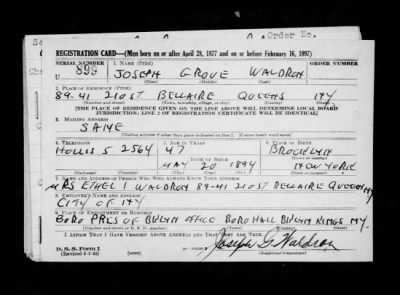 Order No.
REGISTRATION CARD—(Men born on or after April 28, 1877 and on or before February 16, 1897)
SERIAL NUMBER
1. NAME (Print)
ORDER NUMBER
U 899
JOSEPH GROVE WALDRON
2. PLACE OF RESIDENCE (Print)
89-41 210ST BELLAIRE QUEENS NY.
(Number and street) (Town, township, village, or city) (County) (State)
[THE PLACE OF RESIDENCE GIVEN ON THE LINE ABOVE WILL DETERMINE LOCAL BOARD
JURISDICTION; LINE 2 OF REGISTRATION CERTIFICATE WILL BE IDENTICAL]
3. MAILING ADDRESS
SAME
[Mailing address if other than place indicated on line 2. If same insert word same]
4. TELEPHONE
5. AGE IN YEARS
6. PLACE OF BIRTH
HOLLIS 5 2564
47
BROOKLYN
DATE OF BIRTH
MAY 20 1894
NEW YORK
7. NAME AND ADDRESS OF PERSON WHO WILL ALWAYS KNOW YOUR ADDRESS
MRS ETHEL I WALDRON 89-41 210ST BELLAIRE QUEENS NY
8. EMPLOYER'S NAME AND ADDRESS
CITY OF NY
9. PLACE OF EMPLOYMENT OR BUSINESS
BORO PRES OF BKLYN OFFICE BORO HALL BKLYN KINGS NY.
(Number and street or R. F. D. number) (Town) (County) (State)
I AFFIRM THAT I HAVE VERIFIED ABOVE ANSWERS AND THAT THEY ARE TRUE.
D. S. S. Form 1
(Revised 4-1-42)
Joseph G. Waldron
(Registrant's signature)